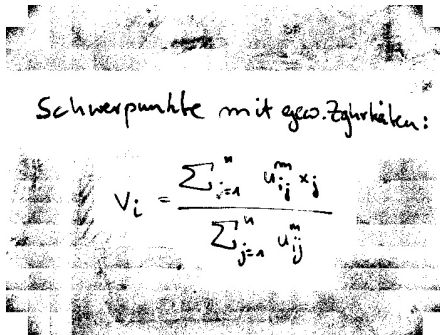 Schwerpunkte mit gew. Zghrkeiten:
v_i = \frac{\sum_{j=1}^{n} u_{ij}^{m} x_j}{\sum_{j=1}^{n} u_{ij}^{m}}